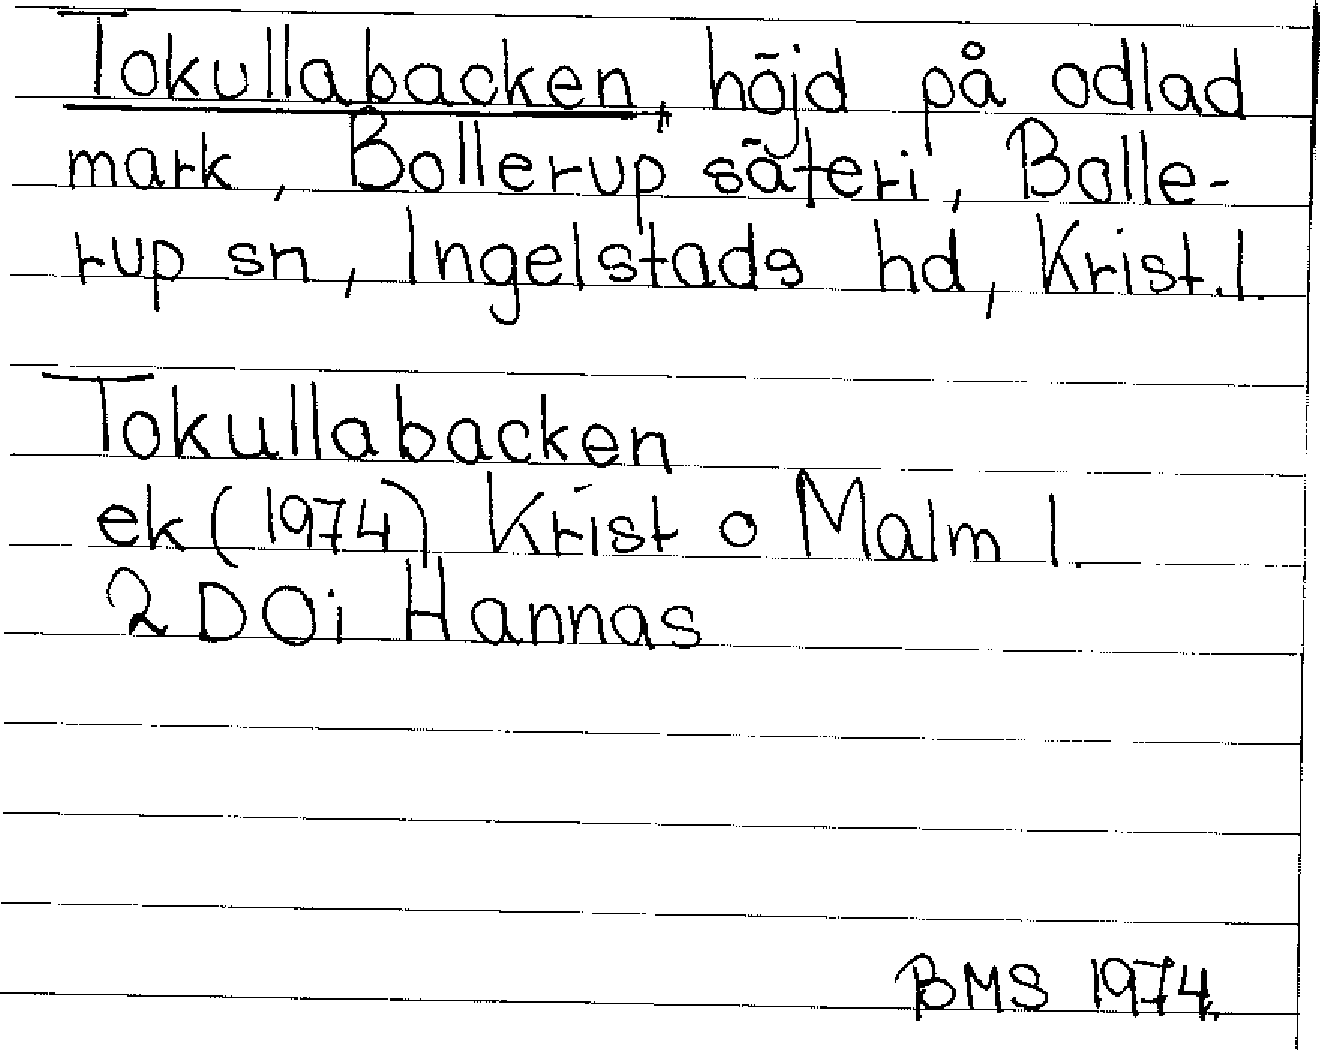 Tokullabacken, höjd på odlad
mark, Bollerup säteri, Bolle-
rup sn, Ingelstads hd, Krist. l.
Tokullabacken
ek (1974) Krist o Malm l.
2 DOi Hannas
BMS 1974.